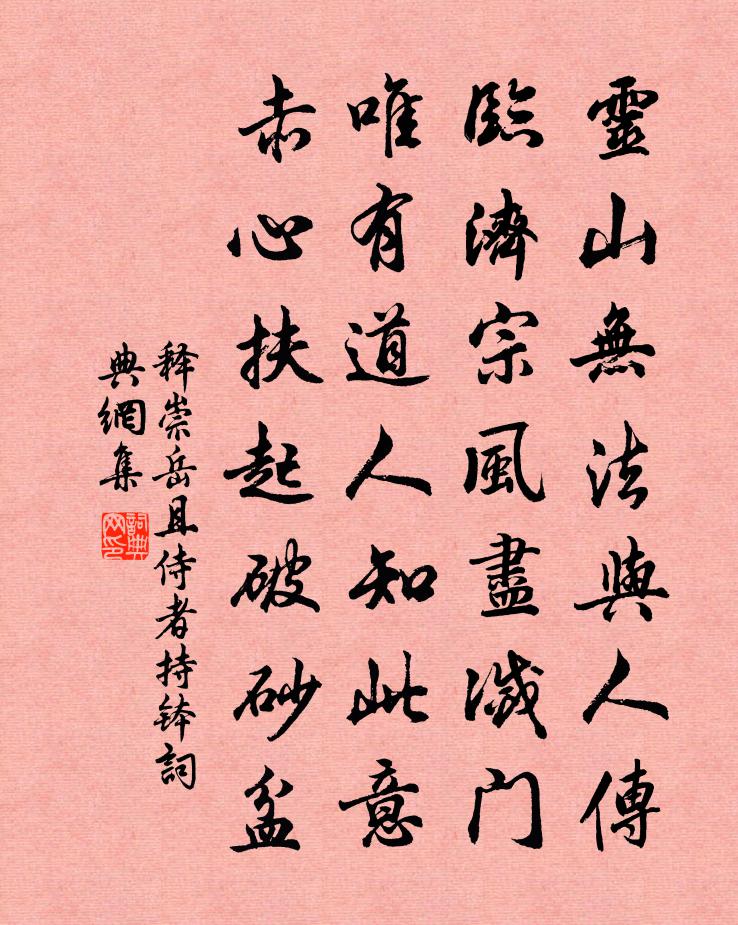 靈山無法與人傳
臨濟宗風盡滅门
唯有道人知此意
赤心扶起破砂盆
释崇岳且侍者持鉢詞
典網集
詞典
网印